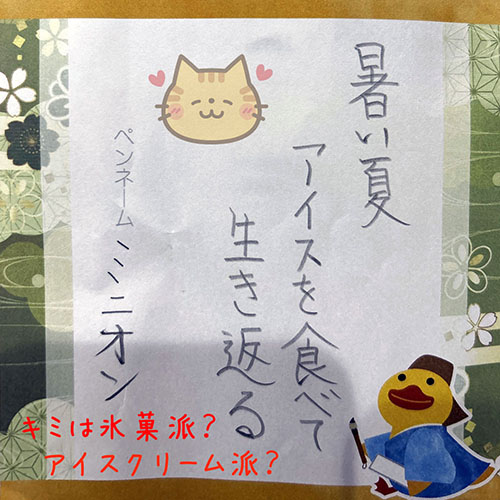 暑い夏
アイスを食べて
生き返る
ペンネーム ミニオン
キミは氷菓派?
アイスクリーム派?